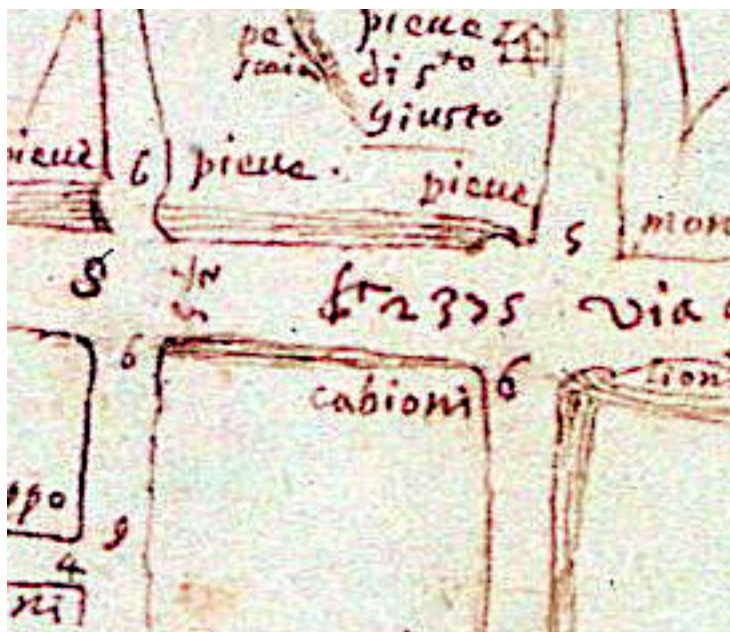 pe
scaia
pieue
di s.to
Giusto
pieue
6
pieue.
pieue
5
mon
S
1/2
5
br 2375
via
6
6
cabioni
lion
ppo
9
4
ni